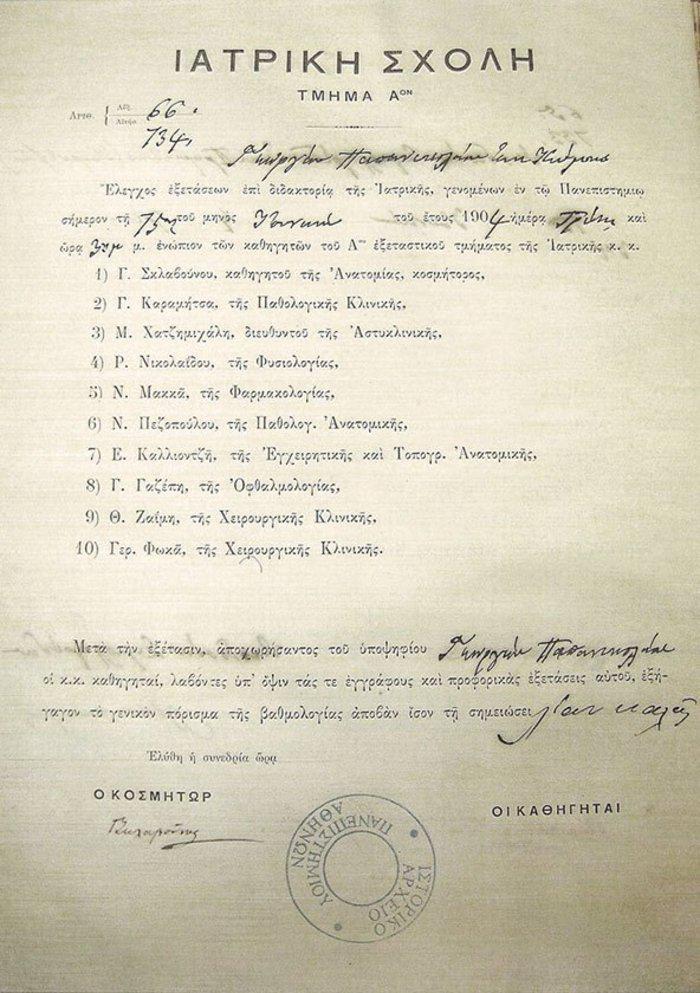 ΙΑΤΡΙΚΗ ΣΧΟΛΗ
ΤΜΗΜΑ Α^ΟΝ
Αριθ. { Αὔξ. 66.
734
Γεωργίου Παπανικολάου ἐκ Κύμης
Ἔλεγχος ἐξετάσεων ἐπὶ διδακτορίᾳ τῆς Ἰατρικῆς, γενομένων ἐν τῷ Πανεπιστημίῳ
σήμερον τῇ 15ῃ τοῦ μηνὸς Ἰουνίου τοῦ ἔτους 1904 ἡμέρᾳ Τρίτῃ καὶ
ὥρᾳ μ. ἐνώπιον τῶν καθηγητῶν τοῦ Α^ου ἐξεταστικοῦ τμήματος τῆς Ἰατρικῆς κ. κ.
1) Γ. Σκλαβούνου, καθηγητοῦ τῆς Ἀνατομίας, κοσμήτορος,
2) Γ. Καραμήτσα, τῆς Παθολογικῆς Κλινικῆς,
3) Μ. Χατζημιχάλη, διευθυντοῦ τῆς Ἀστυκλινικῆς,
4) Ρ. Νικολαΐδου, τῆς Φυσιολογίας,
5) Ν. Μακκᾶ, τῆς Φαρμακολογίας,
6) Ν. Πεζοπούλου, τῆς Παθολογ. Ἀνατομικῆς,
7) Ε. Καλλιοντζῆ, τῆς Ἐγχειρητικῆς καὶ Τοπογρ. Ἀνατομικῆς,
8) Γ. Γαζέπη, τῆς Ὀφθαλμολογίας,
9) Θ. Ζαΐμη, τῆς Χειρουργικῆς Κλινικῆς,
10) Γερ. Φωκᾶ, τῆς Χειρουργικῆς Κλινικῆς.
Μετὰ τὴν ἐξέτασιν, ἀποχωρήσαντος τοῦ ὑποψηφίου Γεωργίου Παπανικολάου
οἱ κ.κ. καθηγηταί, λαβόντες ὑπ' ὄψιν τάς τε ἐγγράφους καὶ προφορικὰς ἐξετάσεις αὐτοῦ, ἐξή-
γαγον τὸ γενικὸν πόρισμα τῆς βαθμολογίας ἀποβὰν ἴσον τῇ σημειώσει λίαν καλῶς
Ἐλύθη ἡ συνεδρία ὥρᾳ
Ο ΚΟΣΜΗΤΩΡ
ΟΙ ΚΑΘΗΓΗΤΑΙ
ΠΑΝΕΠΙΣΤΗΜΙΟΥ ΑΘΗΝΩΝ
ΙΣΤΟΡΙΚΟ ΑΡΧΕΙΟ